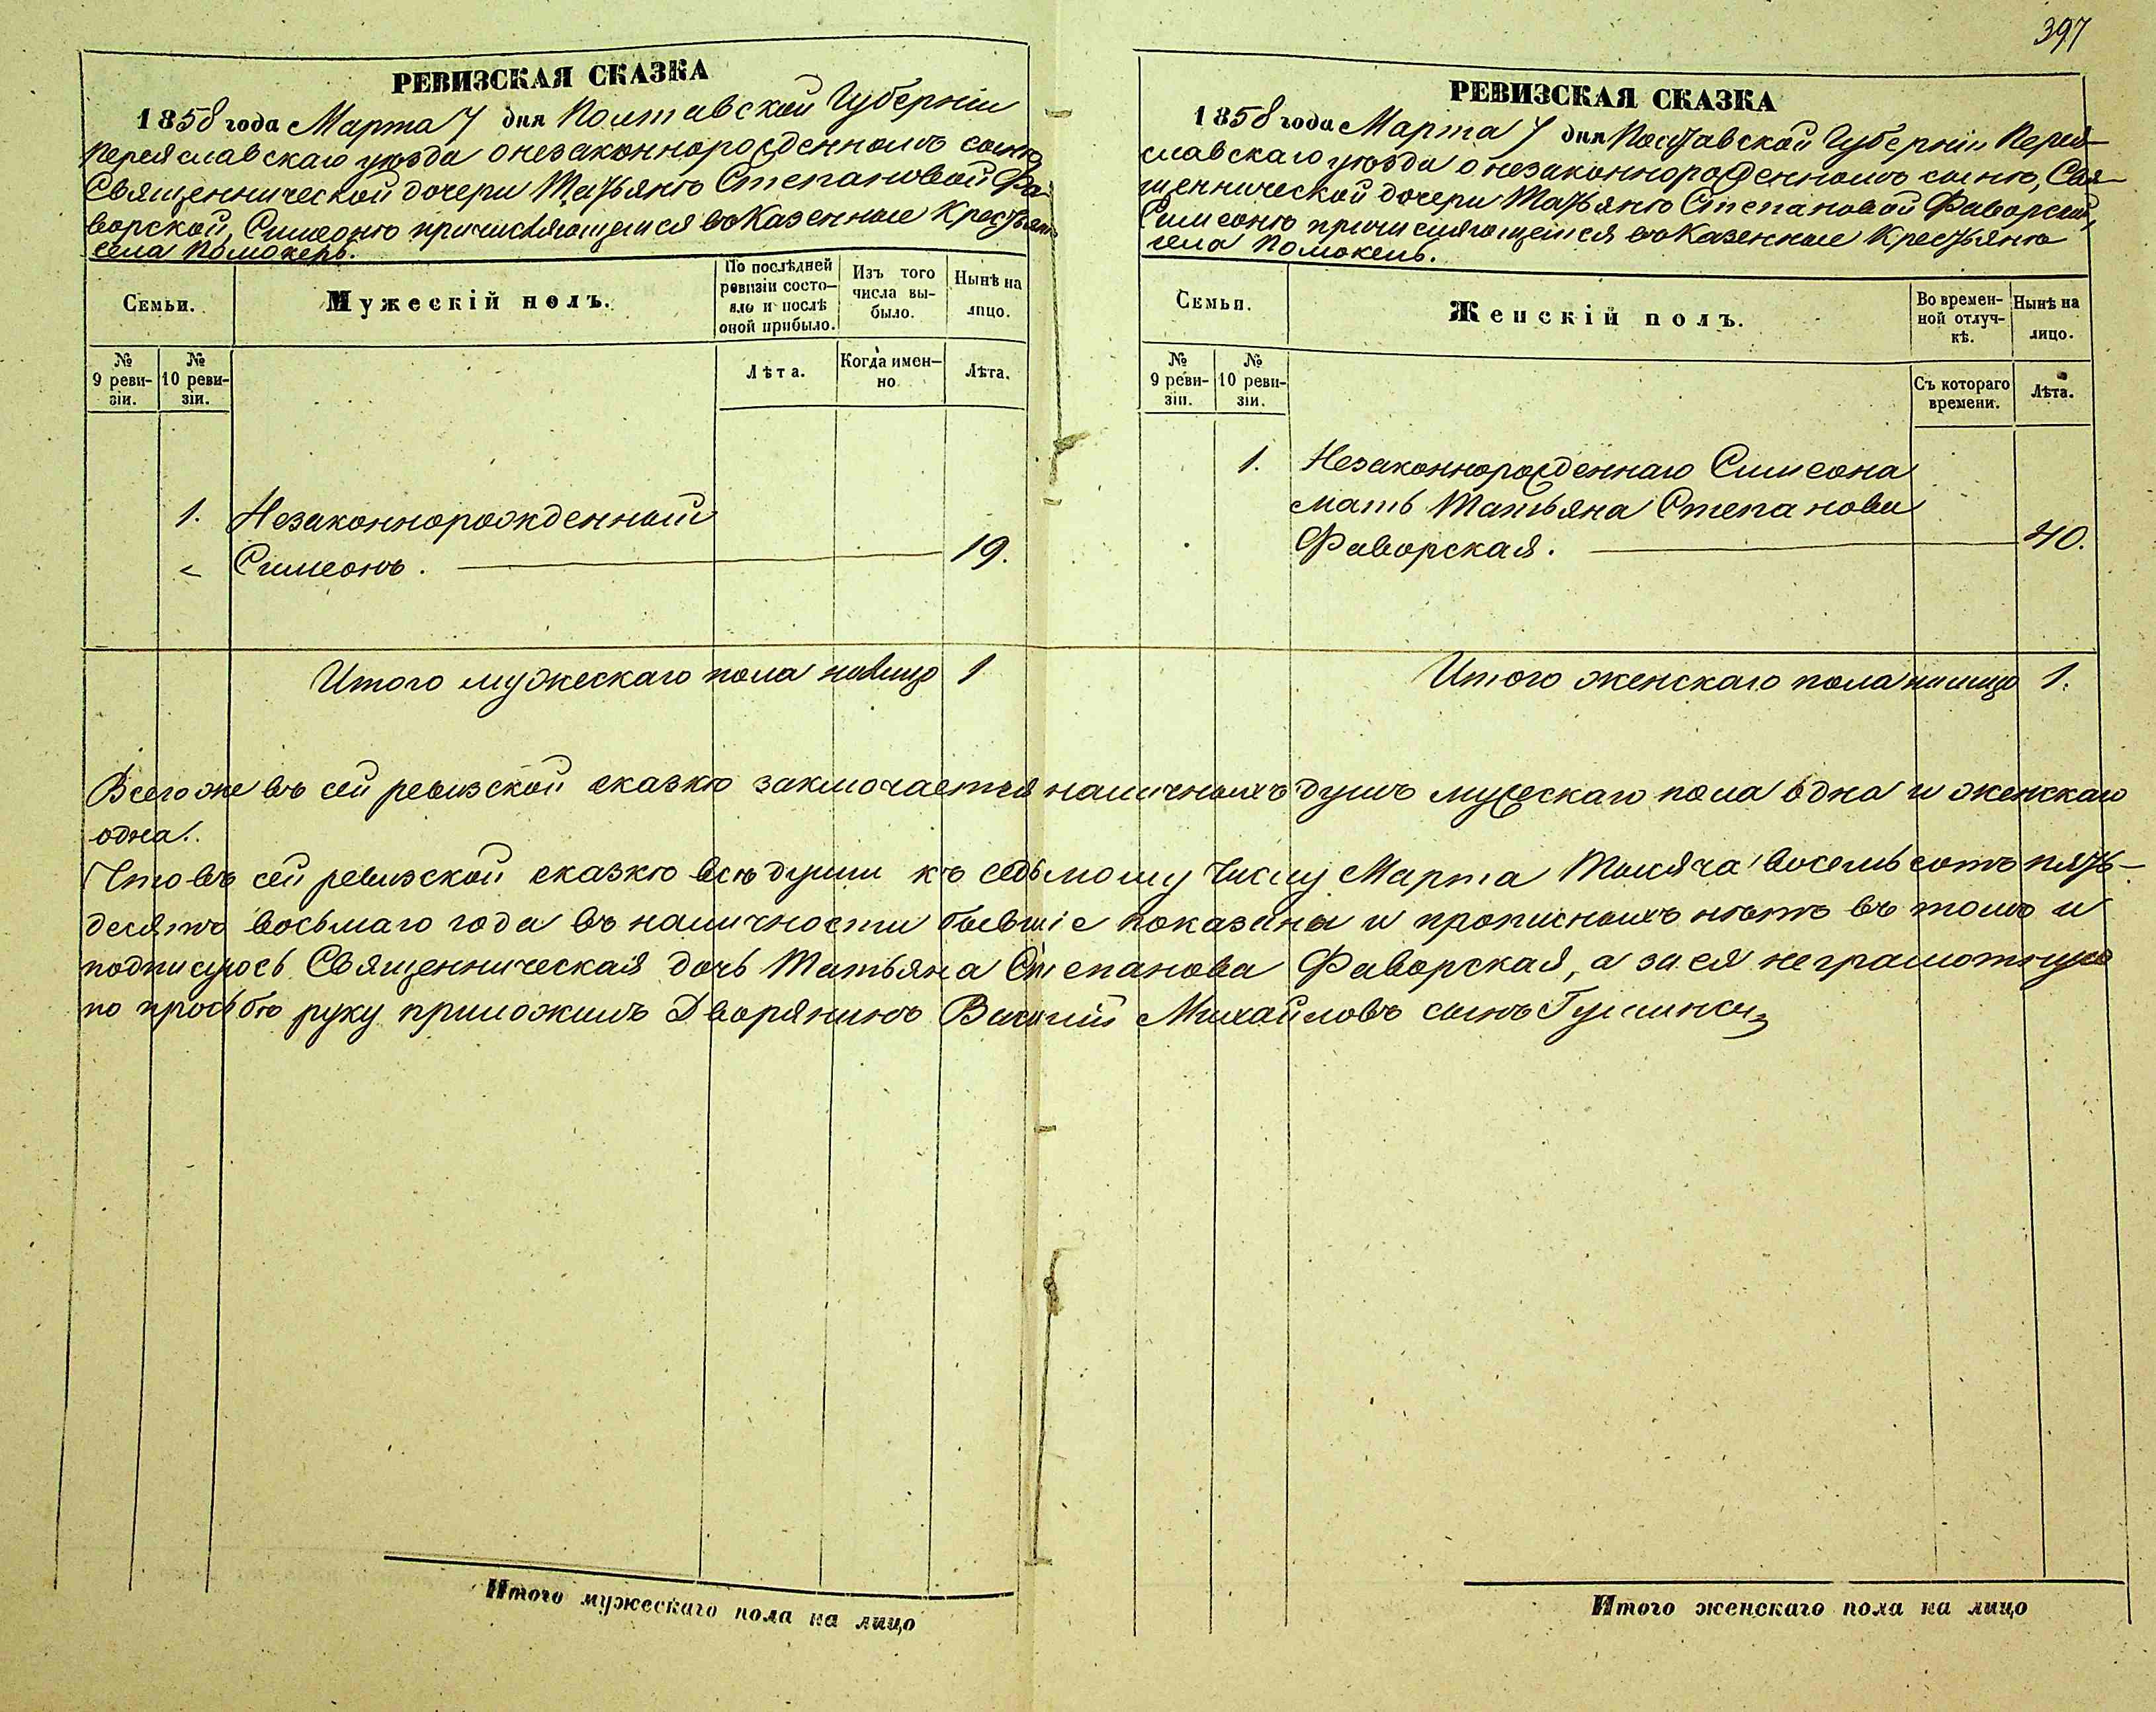 397
РЕВИЗСКАЯ СКАЗКА
1858 года Марта 7 дня Полтавской Губерніи
Переяславскаго уѣзда о незаконнорожденномъ сынѣ,
Священнической дочери Татьянѣ Степановой Фа-
ворской, Симеонѣ причисляющемся въ Казенные Крестьяне
села Помокель.
Семьи.
Мужескій полъ.
По послѣдней ревизіи состо-
яло и послѣ оной прибыло.
Изъ того числа вы-
было.
Нынѣ на лицо.
№ 9 реви-
зіи.
№ 10 реви-
зіи.
Лѣта.
Когда имен-
но
Лѣта.
1. Незаконнорожденный
Симеонъ. 19.
Итого мужескаго пола налицо 1
РЕВИЗСКАЯ СКАЗКА
1858 года Марта 7 дня Полтавской Губерніи Перея-
славскаго уѣзда о незаконнорожденномъ сынѣ, Свя-
щеннической дочери Татьянѣ Степановой Фаворской,
Симеонѣ причисляющемся въ Казенные Крестьянѣ
села Помокель.
Семьи.
Женскій полъ.
Во времен-
ной отлуч-
кѣ.
Нынѣ на лицо.
№ 9 реви-
зіи.
№ 10 реви-
зіи.
Съ котораго времени.
Лѣта.
1. Незаконнорожденнаго Симеона
мать Татьяна Степанова
Фаворская. 40.
Итого женскаго пола налицо 1.
Всего же въ сей ревизской сказкѣ заключается наличныхъ душъ мужескаго пола одна и женскаго
одна.
Что въ сей ревизской сказкѣ всѣ души къ седьмому числу Марта Тысяча восемь сотъ пять-
десятъ восьмаго года въ наличности бывшіе показаны и прописныхъ нѣтъ въ томъ и
подписуюсь Священническая дочь Татьяна Степанова Фаворская, а за ея неграмотную
по прозьбѣ руку приложилъ Дворянинъ Василій Михайловъ сынъ
Итого мужескаго пола на лицо
Итого женскаго пола на лицо